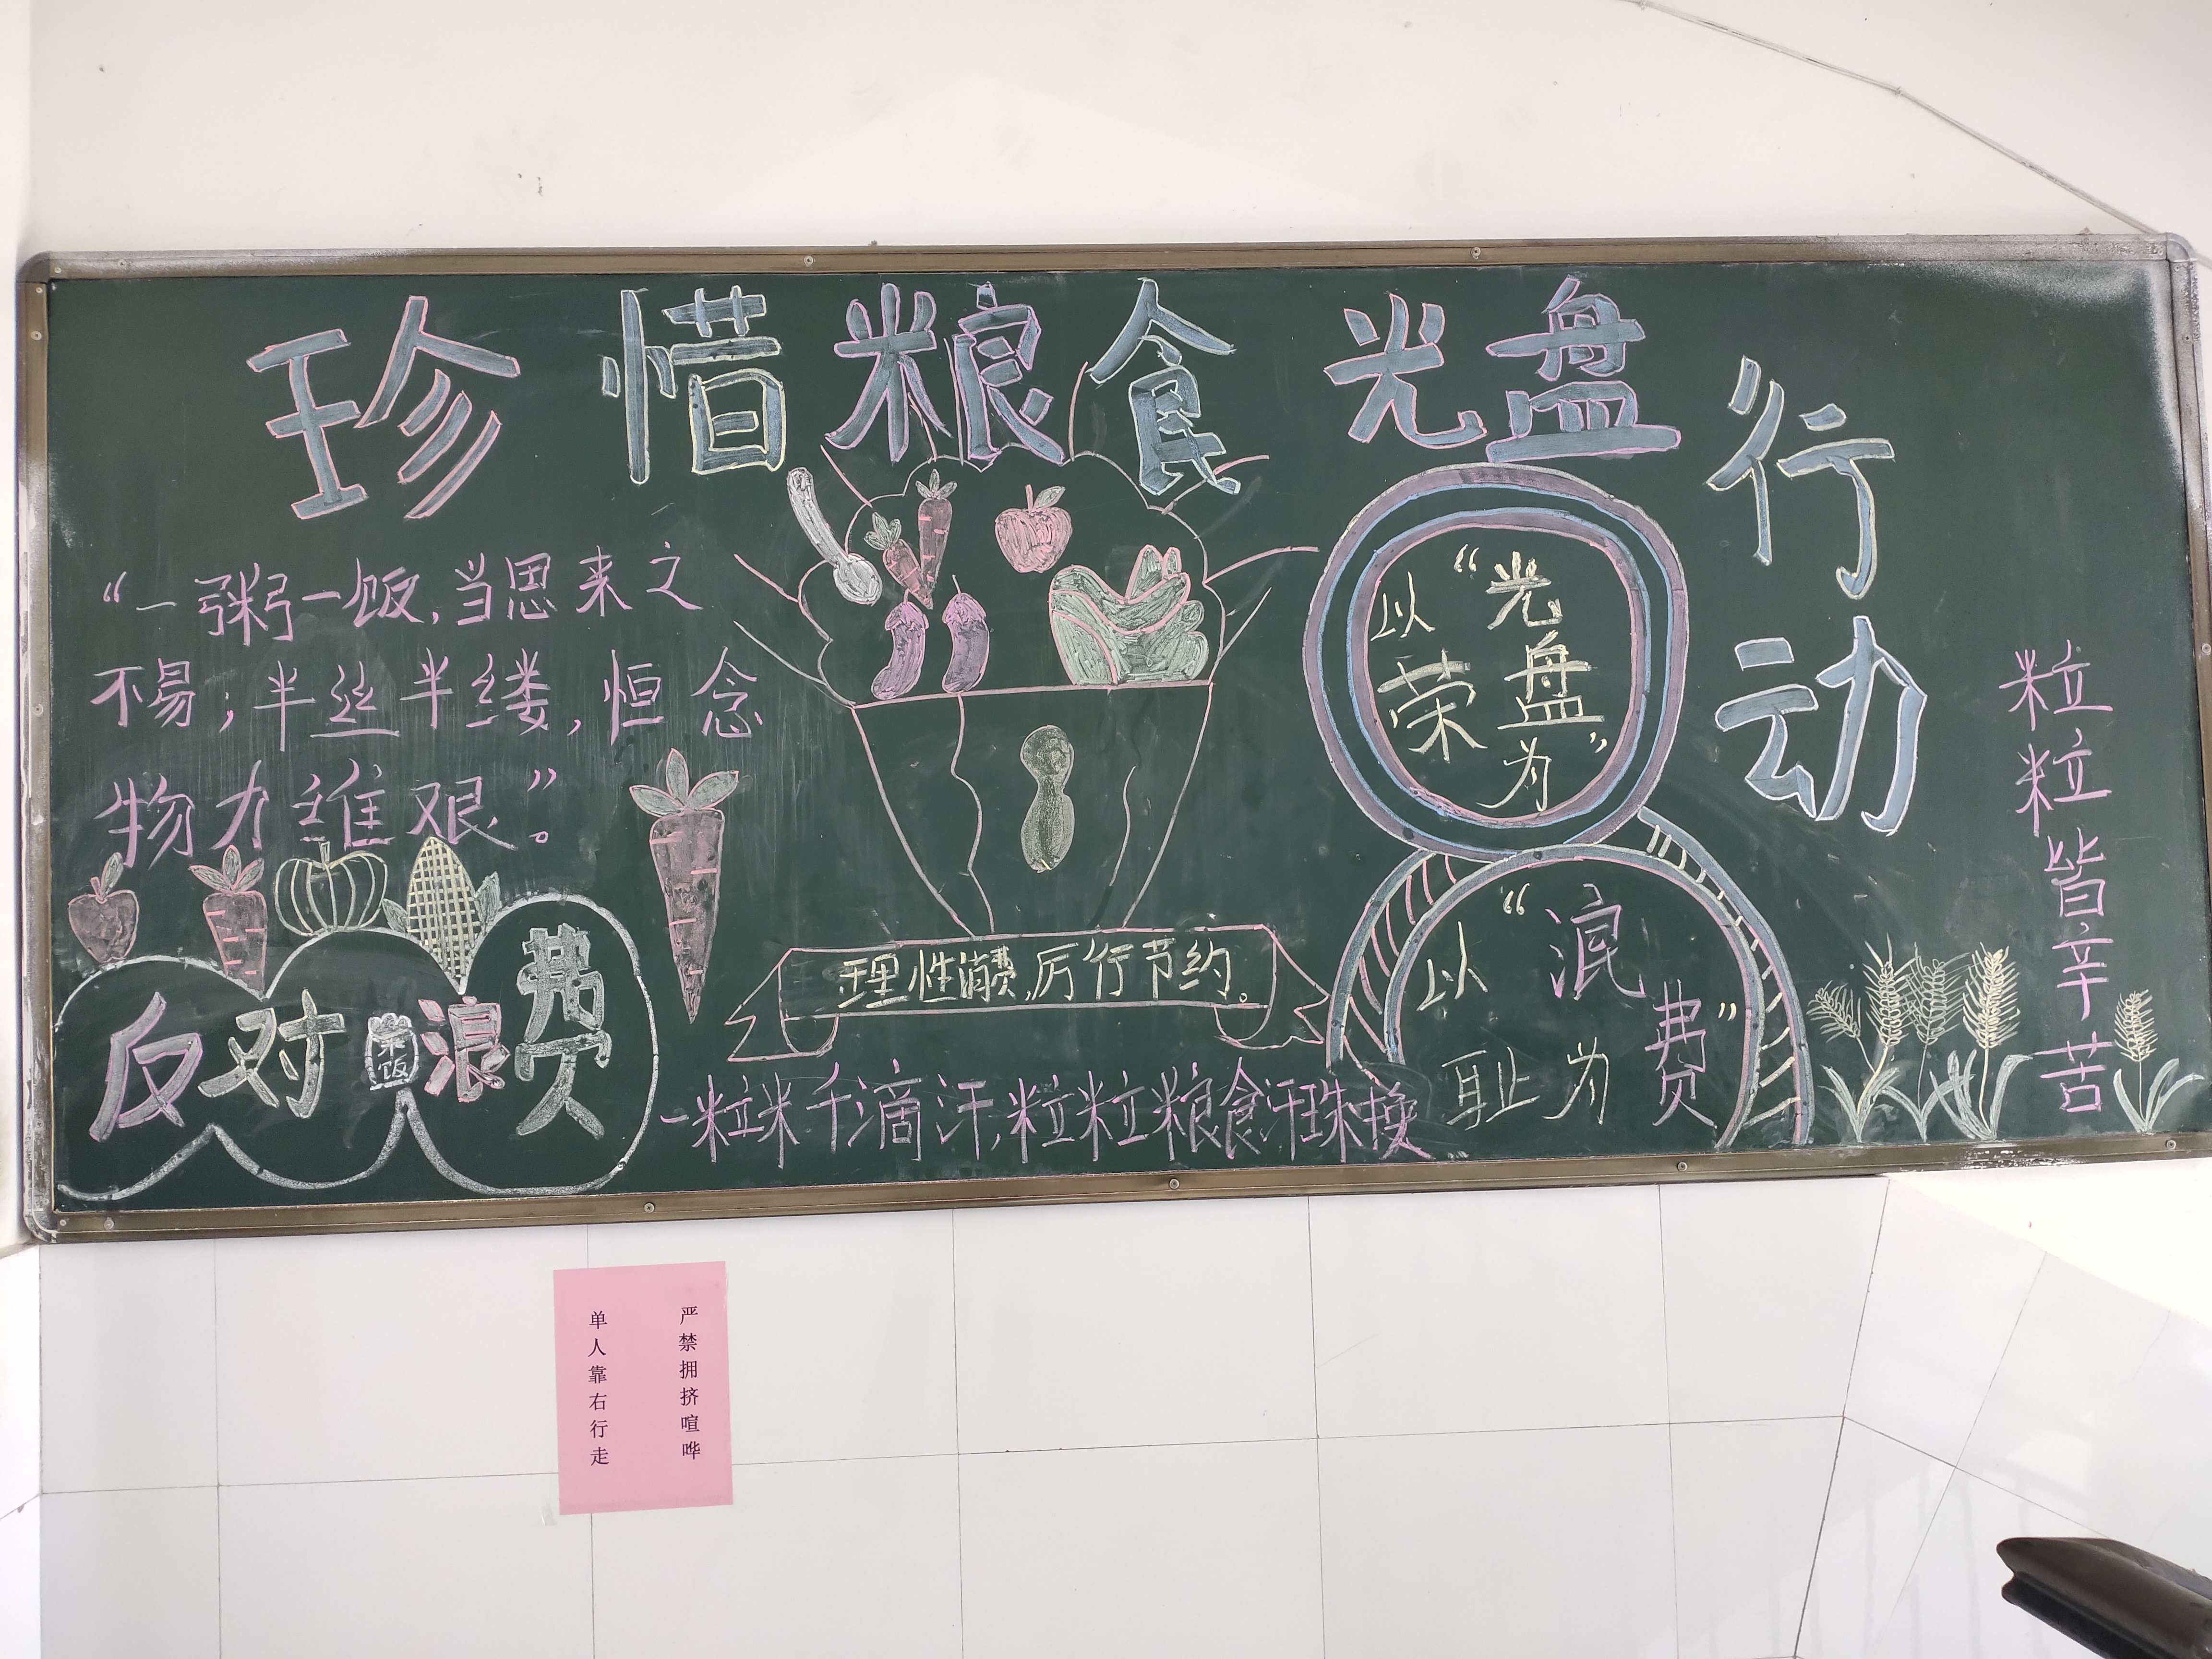 珍惜粮食 光盘行动
“一粥一饭,当思来之
不易;半丝半缕,恒念
物力维艰”。
反对浪费
米饭
理性消费,厉行节约。
一粒米千滴汗,粒粒粮食汗珠换
以“光盘”为荣
以“浪费”为耻
粒粒皆辛苦
严禁拥挤喧哗
单人靠右行走